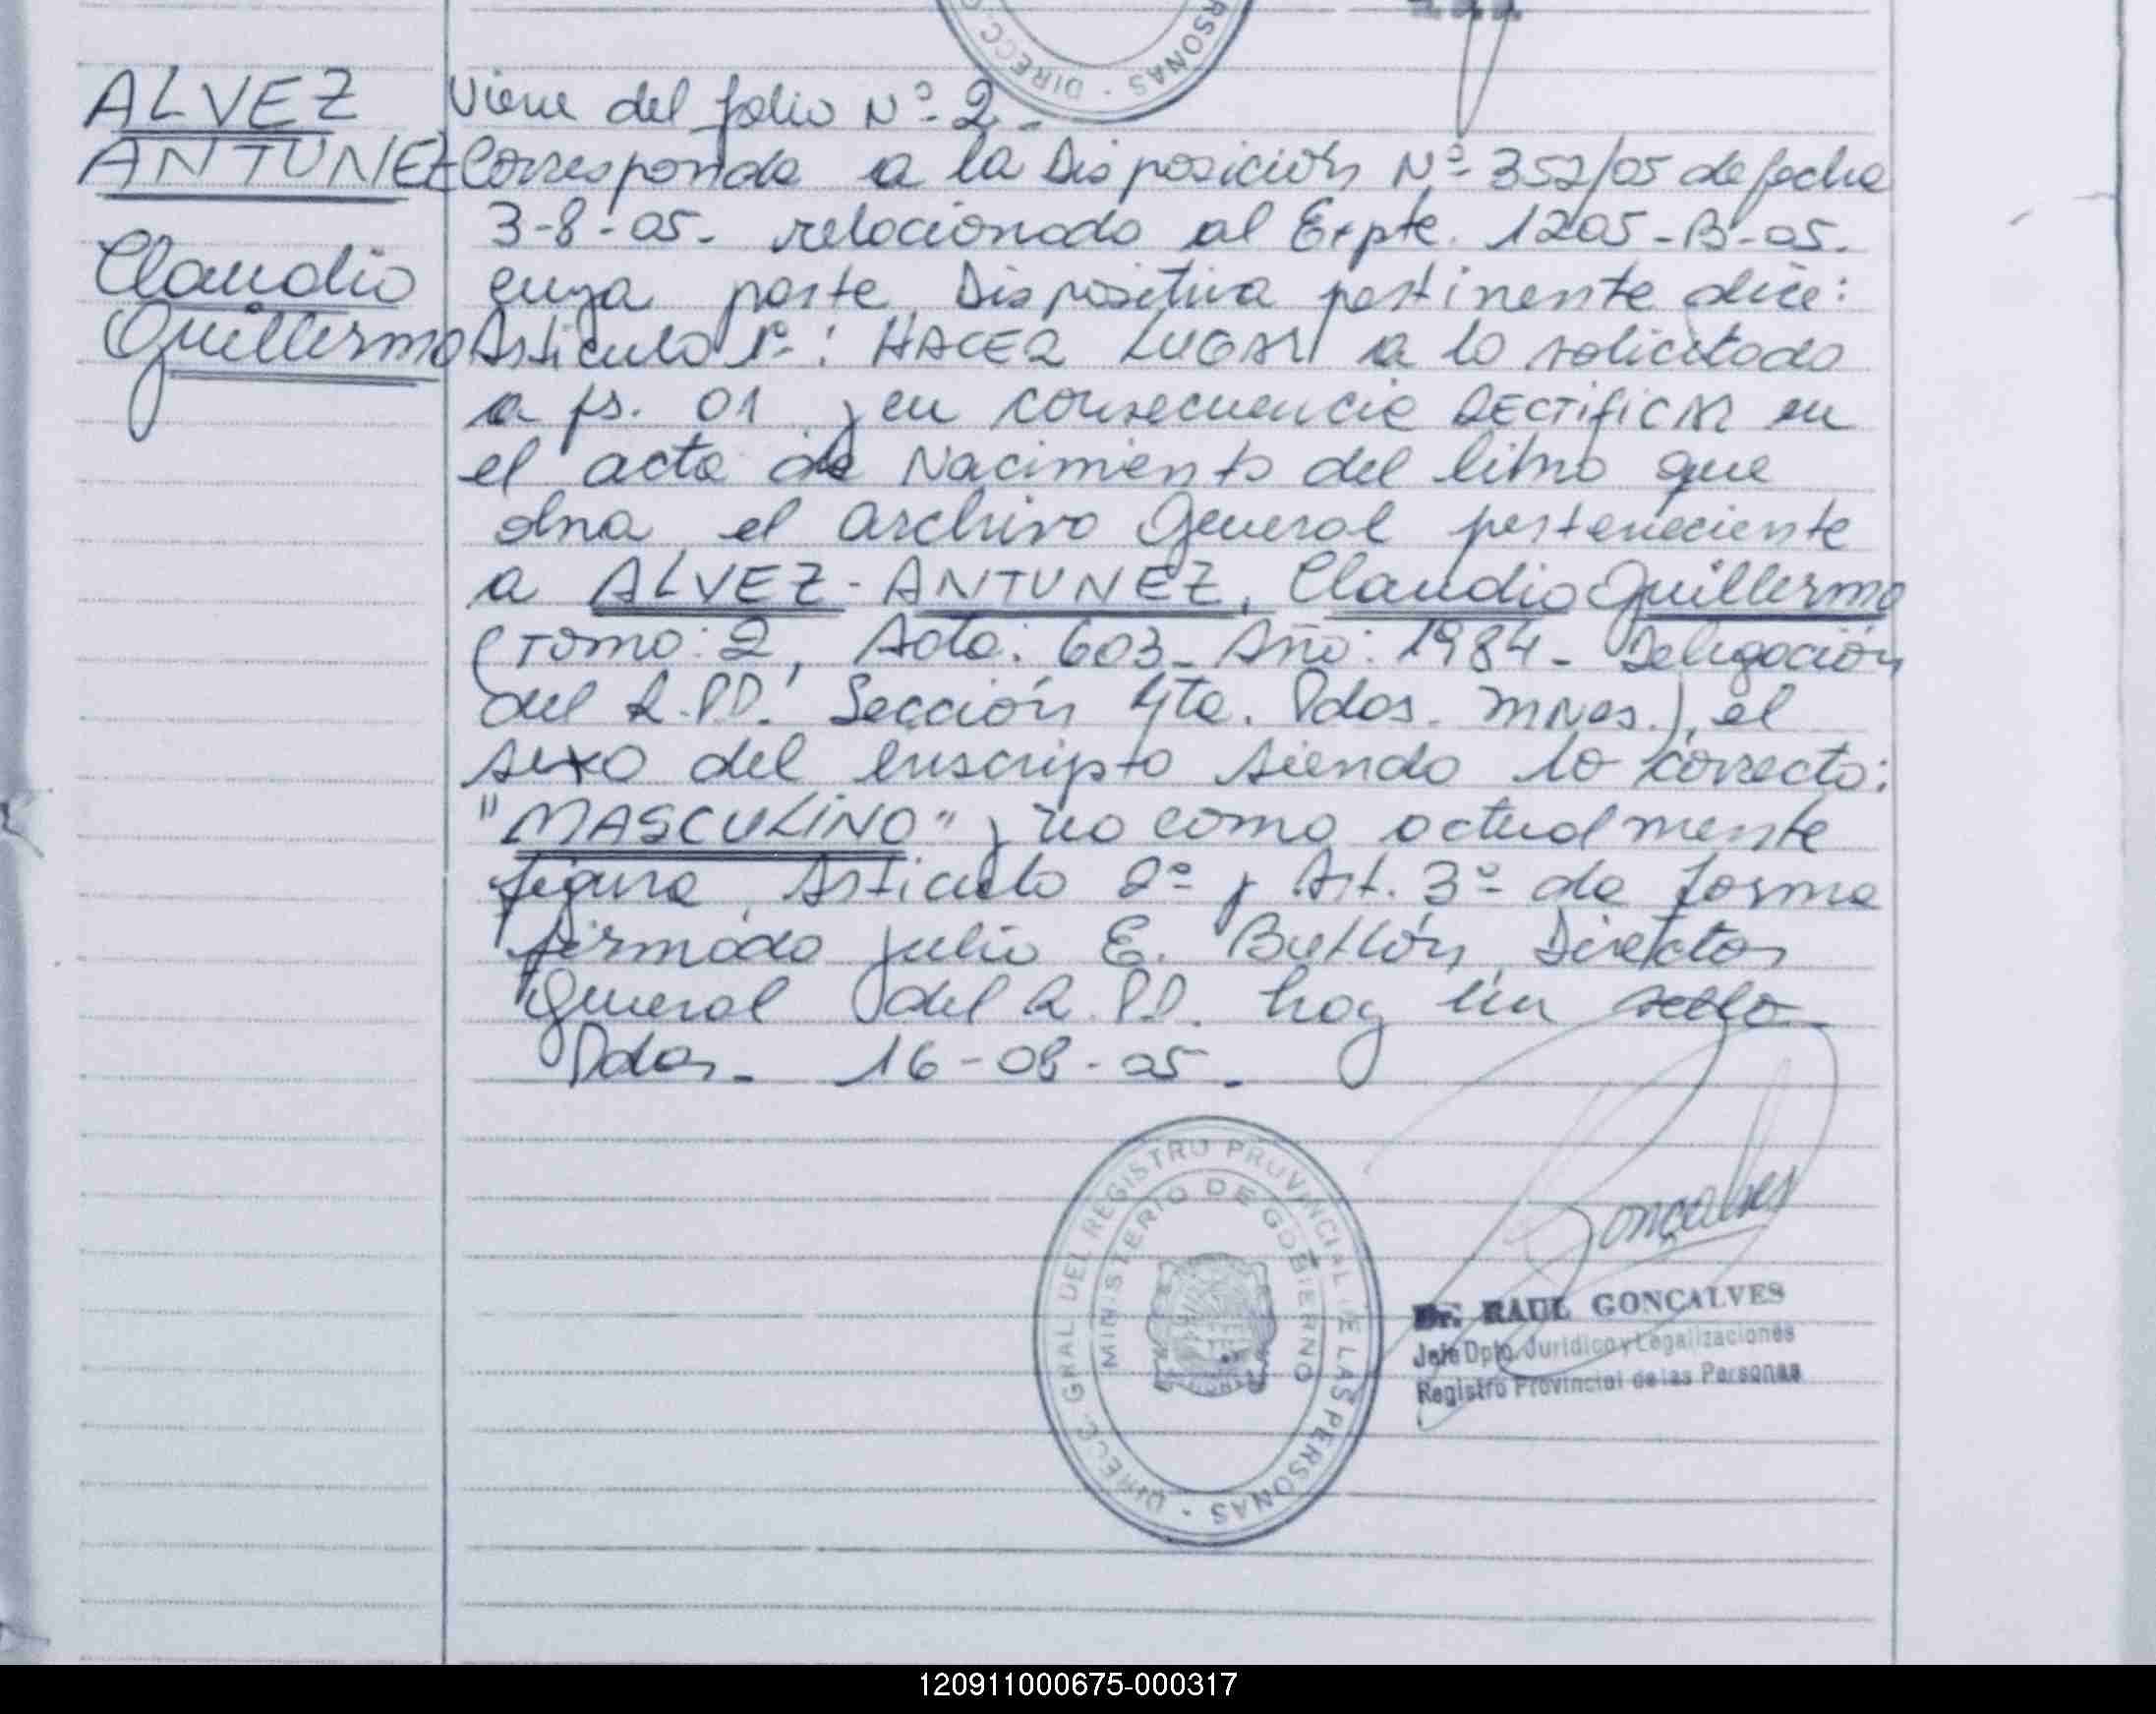 ALVEZ
ANTUNEZ
Claudio
Guillermo
Viene del folio Nº 2.-
Corresponde a la Disposición Nº 352/05 de fecha
3-8-05- relacionado al Expte. 1205-B-05.
cuya parte Dispositiva pertinente dice:
Artículo 1º: HACER LUGAR a lo solicitado
a fs. 01 y en consecuencia RECTIFICAR en
el acta de Nacimiento del libro que
obra el archivo General perteneciente
a ALVEZ-ANTUNEZ, Claudio Guillermo
(Tomo: 2, Acta: 603- Año: 1984- Delegación
del R.P.P. Sección 4ta. Pdas. Mnes.), el
sexo del inscripto siendo lo correcto:
"MASCULINO" y no como actualmente
figura, Artículo 2º y Art. 3º de forma
firmado Julio E. Butlón, Director
General del R.P.P. hay un sello
Pdas- 16-08-05.-
DIRECC. GRAL DEL REGISTRO PROVINCIAL DE LAS PERSONAS
MINISTERIO DE GOBIERNO
Gonçalves
Dr. RAUL GONÇALVES
Jefe Dpto. Jurídico y Legalizaciones
Registro Provincial de las Personas
120911000675-000317